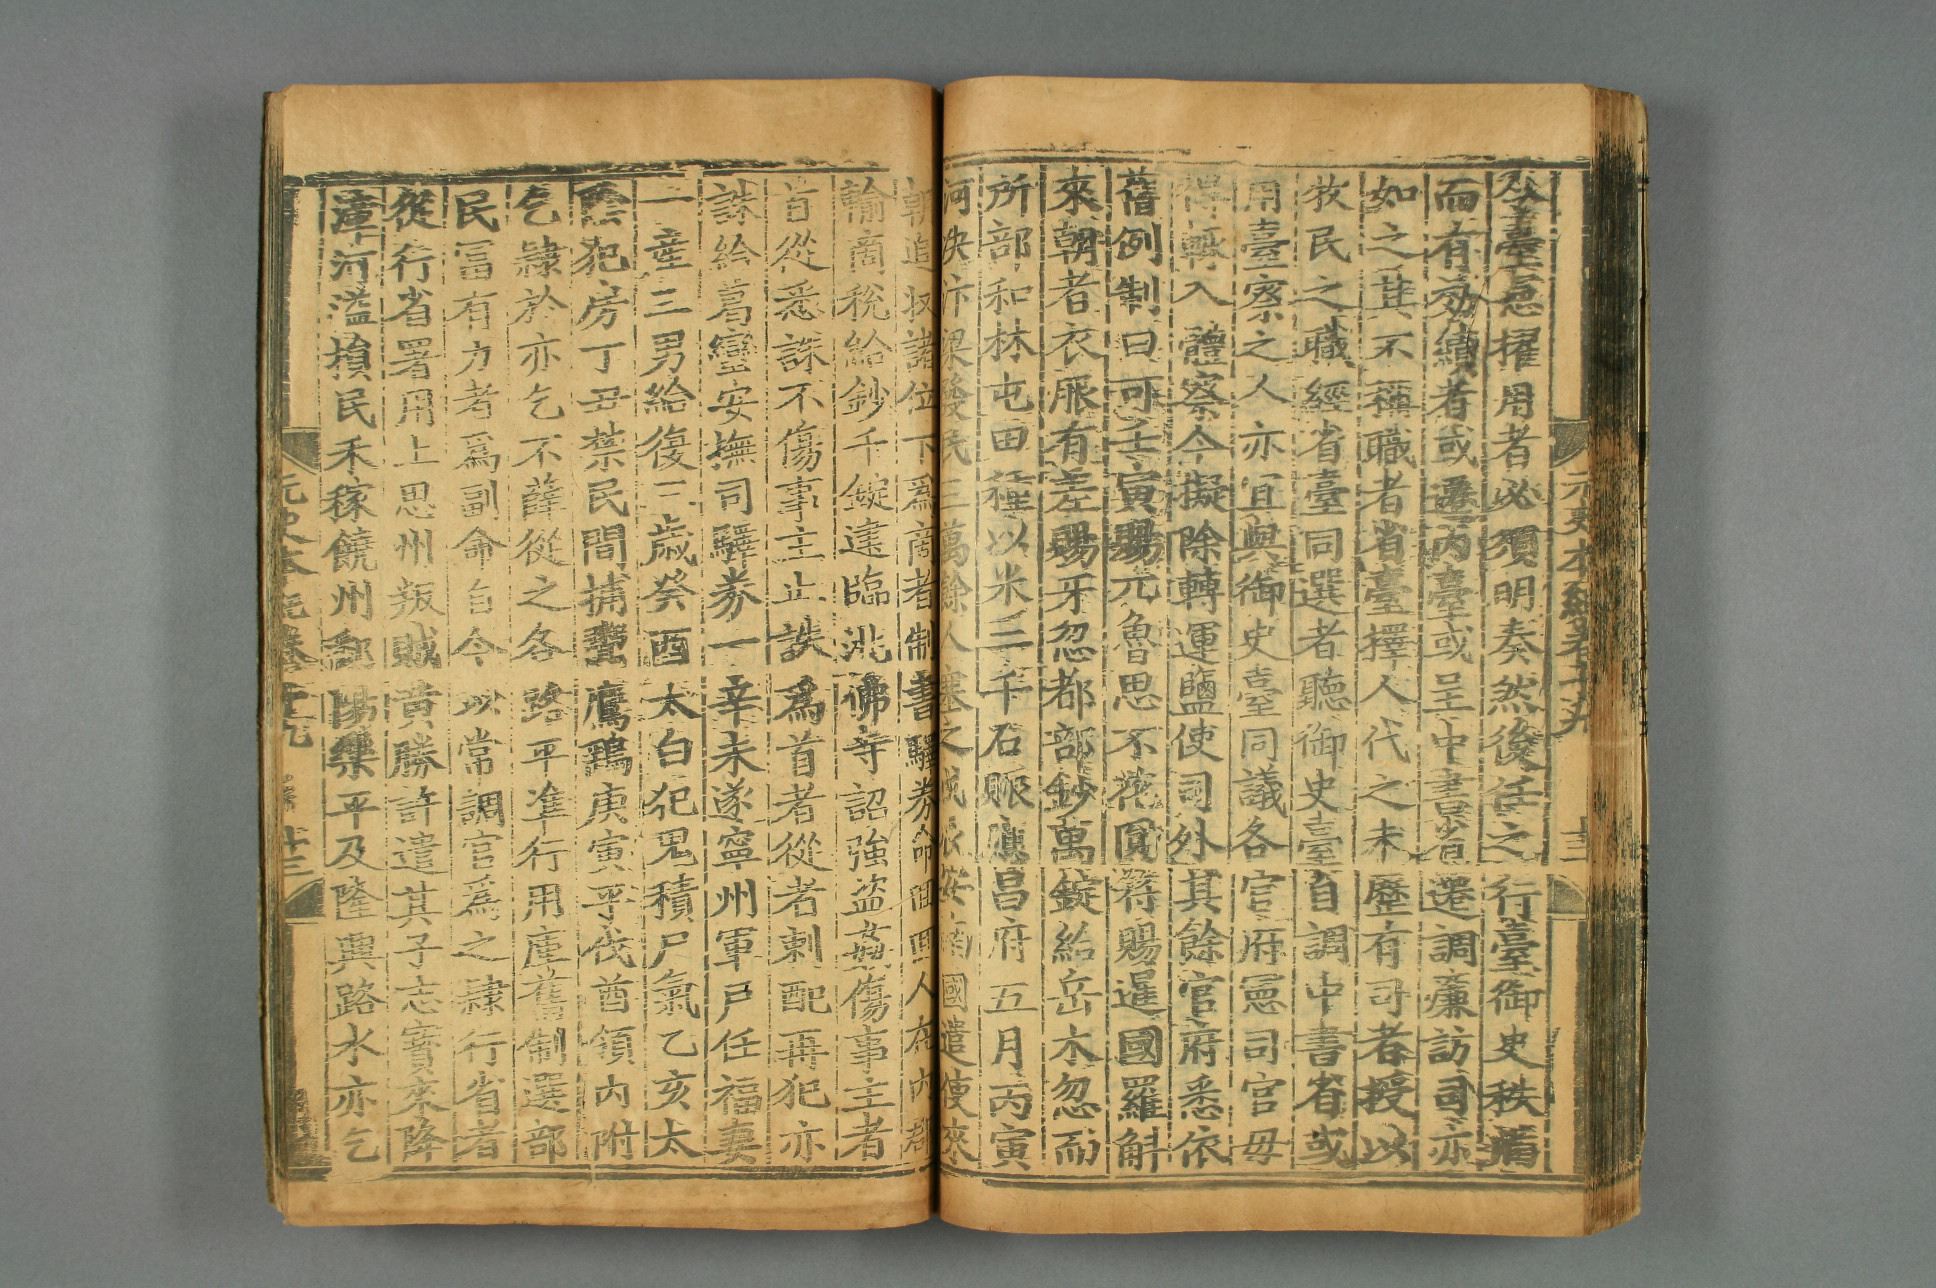 元史本紀卷十九
及臺憲擢用者必須明奏然後任之行臺御史秩滿
而有效績者或遷內臺或呈中書省遷調廉訪司亦
如之其不稱職者省臺擇人代之未歷有司者授以
牧民之職經省臺同選者聽御史臺自調中書省或
用臺察之人亦宜與御史臺同議各官府憲司官毋
得輒入體察今擬除轉運鹽使司外其餘官府悉依
舊例制曰可壬寅賜元魯思不花圓符賜暹國羅斛
來朝者衣服有差賜牙忽都部鈔萬錠給岳木忽而
所部和林屯田種以米三千石賑應昌府五月丙寅
河決汴梁發民三萬餘人塞之戒飭安南國遣使來
朝追收諸位下爲商者制書驛券命回回人在內郡
輸商稅給鈔千錠建臨洮佛寺詔強盜姦傷事主者
首從悉誅不傷事主止誅爲首者從者刺配再犯亦
誅給葛蠻安撫司驛券一辛未遂寧州軍戶任福妻
一產三男給復三歲癸酉太白犯鬼積尸氣乙亥太
陰犯房丁丑禁民間捕鬻鷹鷂庚寅平伐酋領內附
乞隸於亦乞不薛從之各路平準行用庫舊制選部
民富有力者爲副命自今以常調官爲之隸行省者
從行省署用上思州叛賊黃勝許遣其子志寶來降
漳河溢損民禾稼饒州鄱陽樂平及隆興路水亦乞
元史本紀卷十九